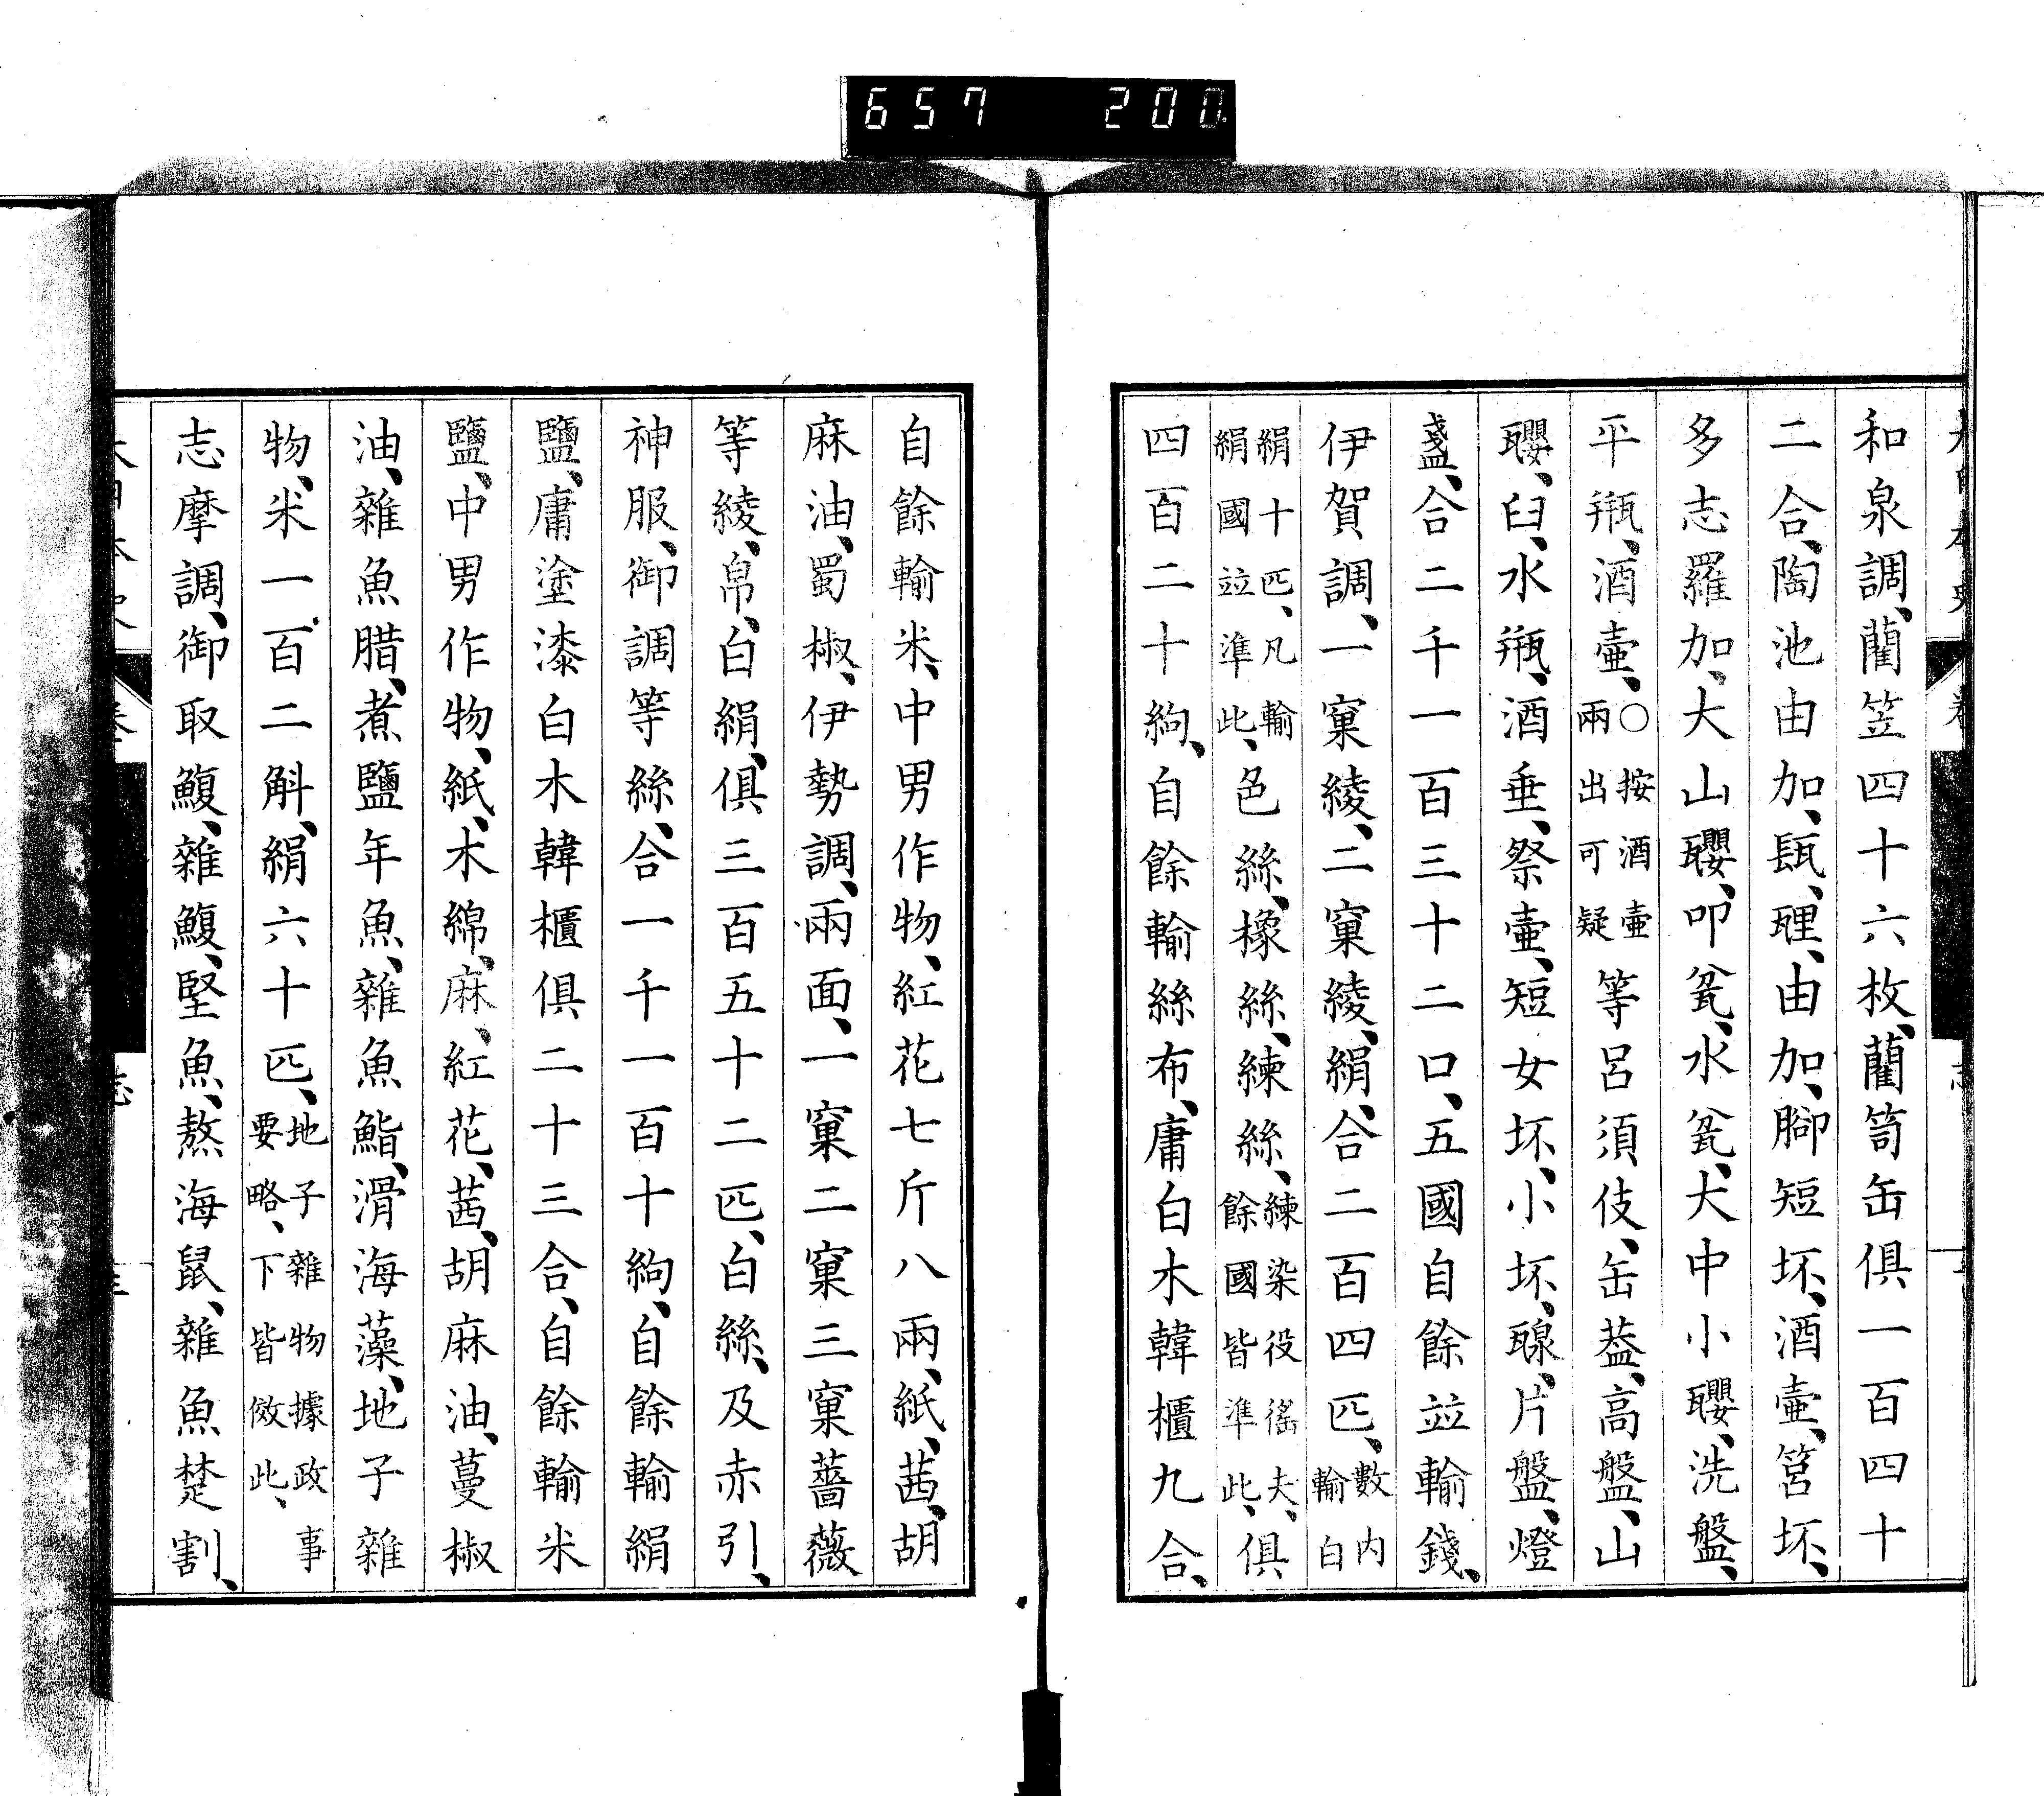 657 200
和泉調、藺笠四十六枚、藺笥缶俱一百四十
二合、陶池由加、瓺、瓼、由加、腳短坏、酒壷、筥坏、
多志羅加、大山罌、叩瓫、水瓫、大中小罌、洗盤、
平瓶、酒壷、○按酒壷兩出可疑等呂須伎、缶葢、高盤、山
罌、臼、水瓶、酒垂、祭壷、短女坏、小坏、片盤、燈
盞、合二千一百三十二口、五國自餘並輸錢、
伊賀調、一窠綾、二窠綾、絹、合二百四匹、數內輸白
絹十匹、凡輸絹國並準此、色絲、橡絲、練絲、練染役徭夫、餘國皆準此、俱
四百二十絇、自餘輸絲布、庸白木韓櫃九合、
自餘輸米、中男作物、紅花七斤八兩、紙、茜、胡
麻油、蜀椒、伊勢調、兩面、一窠二窠三窠薔薇
等綾、帛、白絹、俱三百五十二匹、白絲、及赤引、
神服、御調等絲、合一千一百十絇、自餘輸絹
鹽、庸塗漆白木韓櫃俱二十三合、自餘輸米
鹽、中男作物、紙、木綿、麻、紅花、茜、胡麻油、蔓椒
油、雜魚腊、煮鹽年魚、雜魚鮨、滑海藻、地子雜
物、米一百二斛、絹六十匹、地子雜物據政事要略、下皆倣此、
志摩調、御取鰒、雜鰒、堅魚、熬海鼠、雜魚楚割、